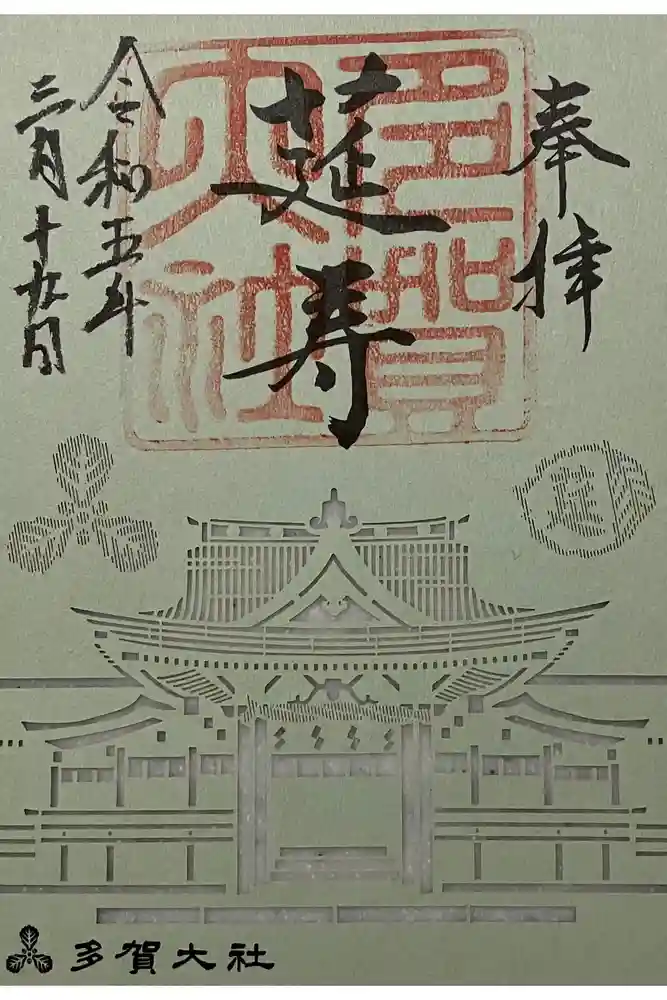 奉拝
延寿
多賀
大社
令和五年
三月十九日
延寿
多賀大社